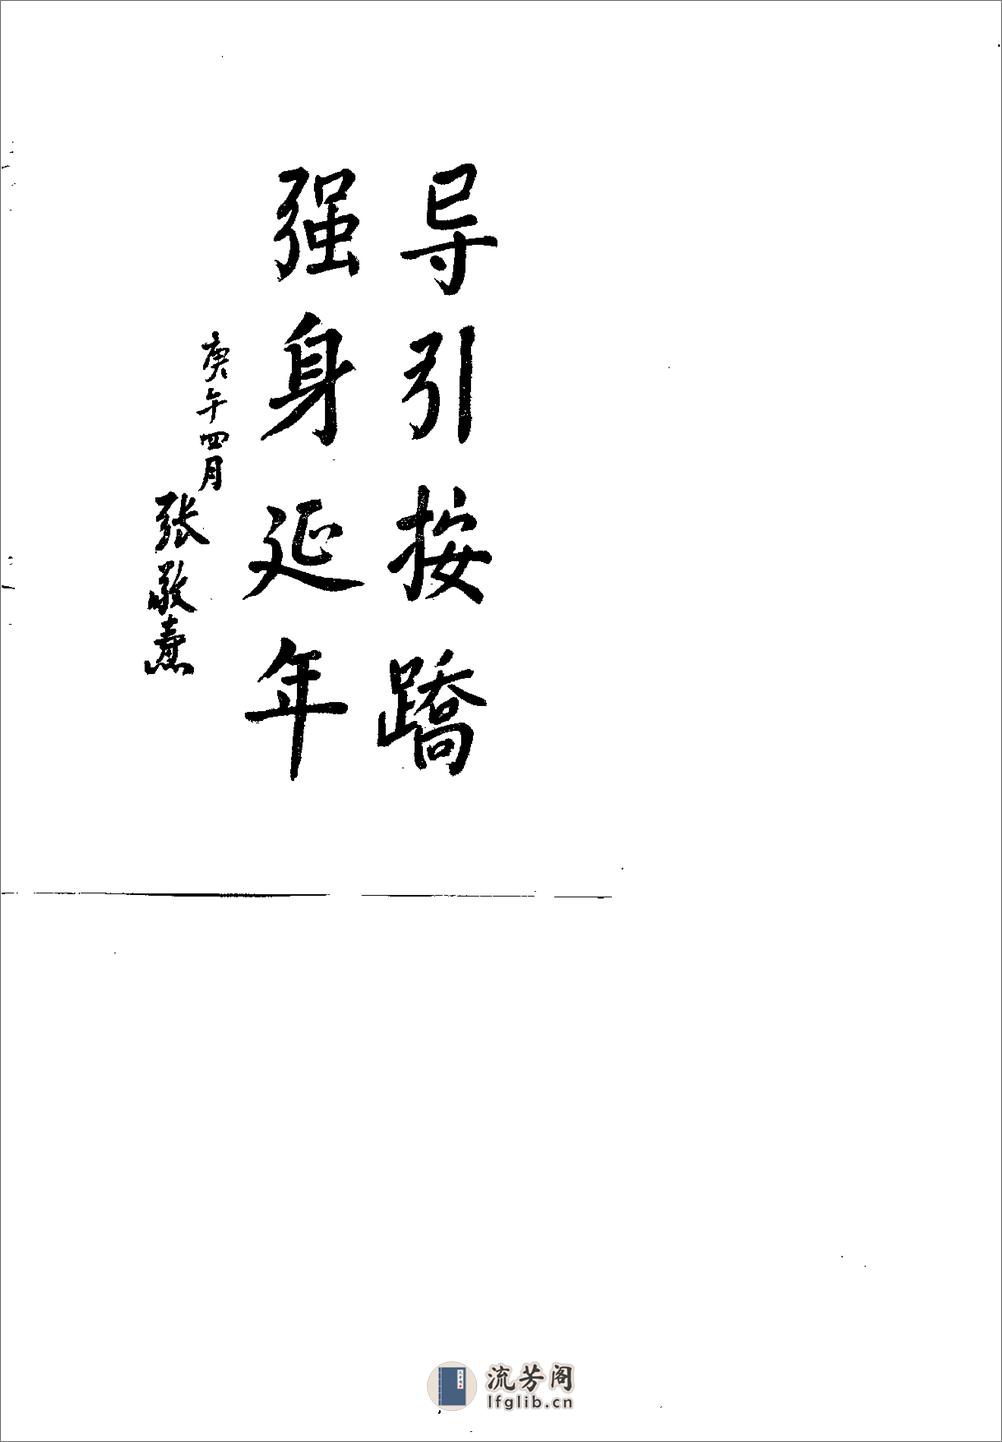 导引按蹻
强身延年
庚午四月
张敬焘
流芳阁
lfglib.cn